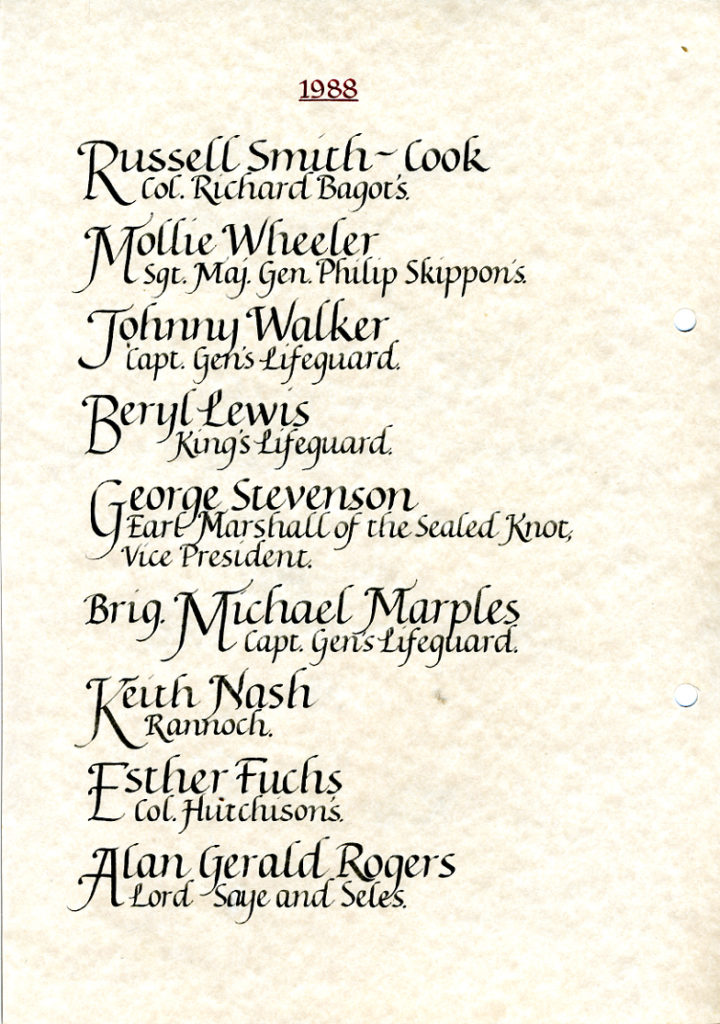 1988
Russell Smith-Cook
Col. Richard Bagot's.
Mollie Wheeler
Sgt. Maj. Gen. Philip Skippon's.
Johnny Walker
Capt. Gen's Lifeguard.
Beryl Lewis
King's Lifeguard.
George Stevenson
Earl Marshall of the Sealed Knot,
Vice President.
Brig. Michael Marples
Capt. Gen's Lifeguard.
Keith Nash
Rannoch.
Esther Fuchs
Col. Hutchuson's.
Alan Gerald Rogers
Lord Saye and Seles.